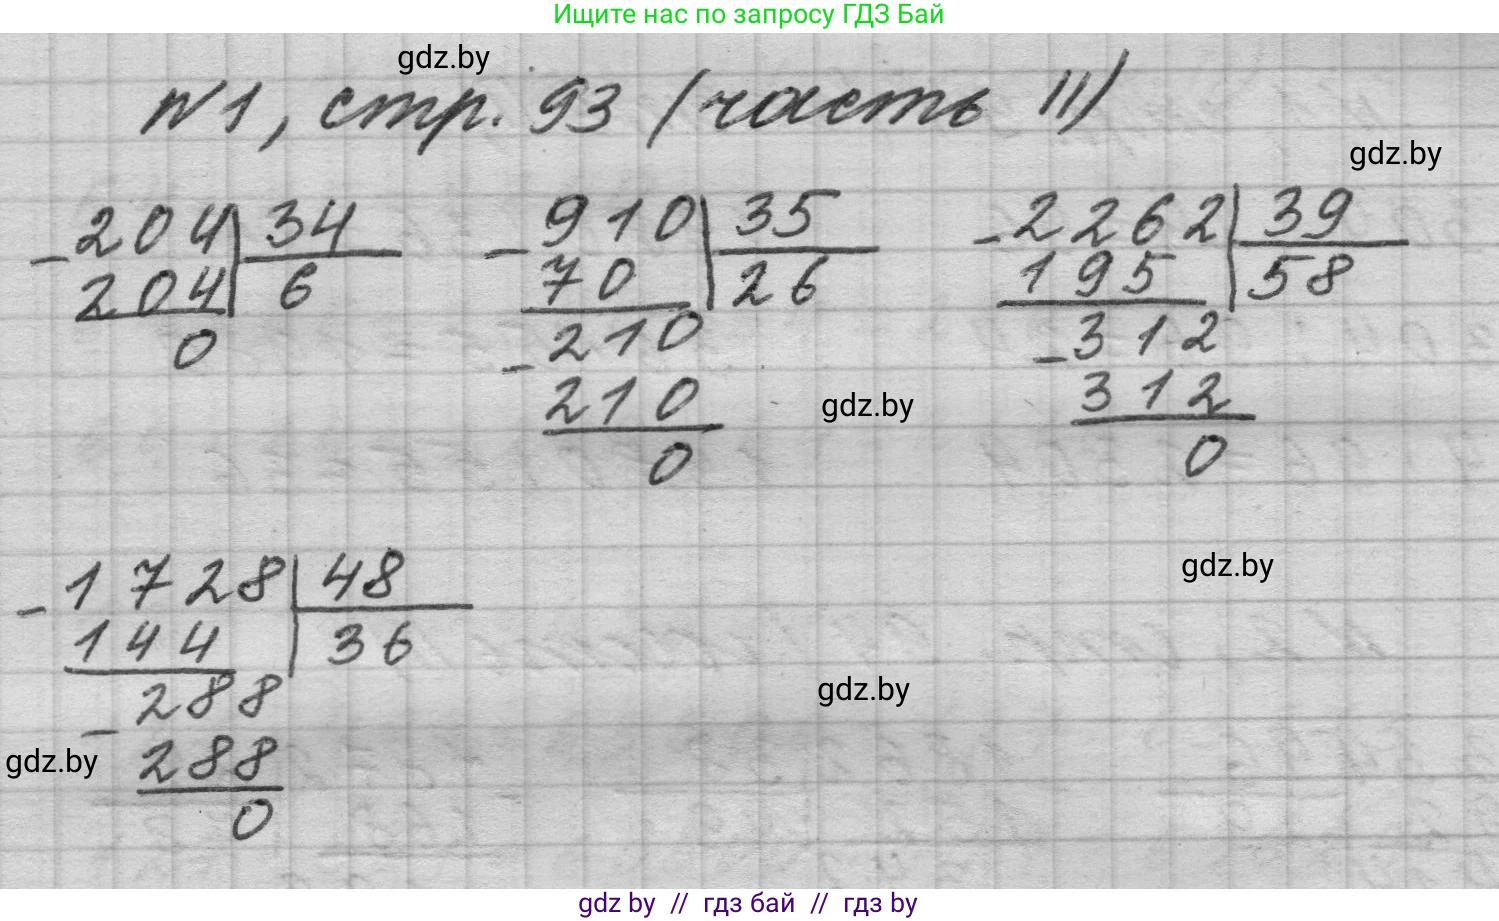 Ищите нас по запросу ГДЗ Бай
gdz.by
№1, стр. 93 (часть II)
gdz.by
-204 | 34
204 | 6
0
-910 | 35
70 | 26
-210
210
0
gdz.by
-2262 | 39
195 | 58
-312
312
0
gdz.by
-1728 | 48
144 | 36
-288
288
0
gdz.by
gdz.by
gdz by // гдз бай // гдз by